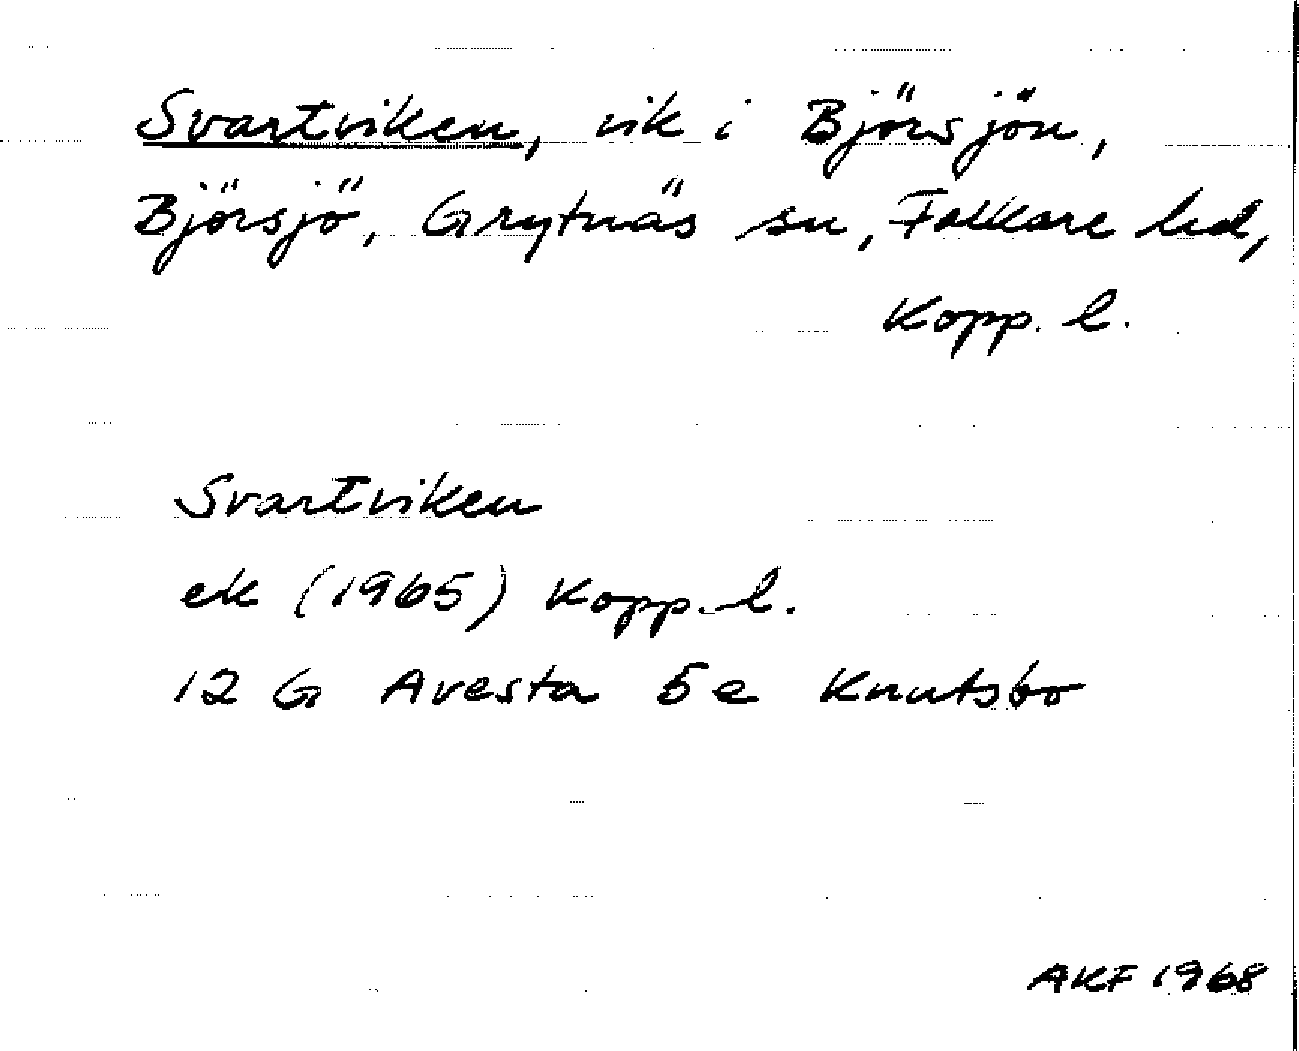 Svartviken, vik i Björsjön,
Björsjö, Grytnäs sn, Folkare hd,
Kopp. l.
Svartviken
ek (1965) Kopp. l.
12 G Avesta 5e Knutsbo
AKF 1968